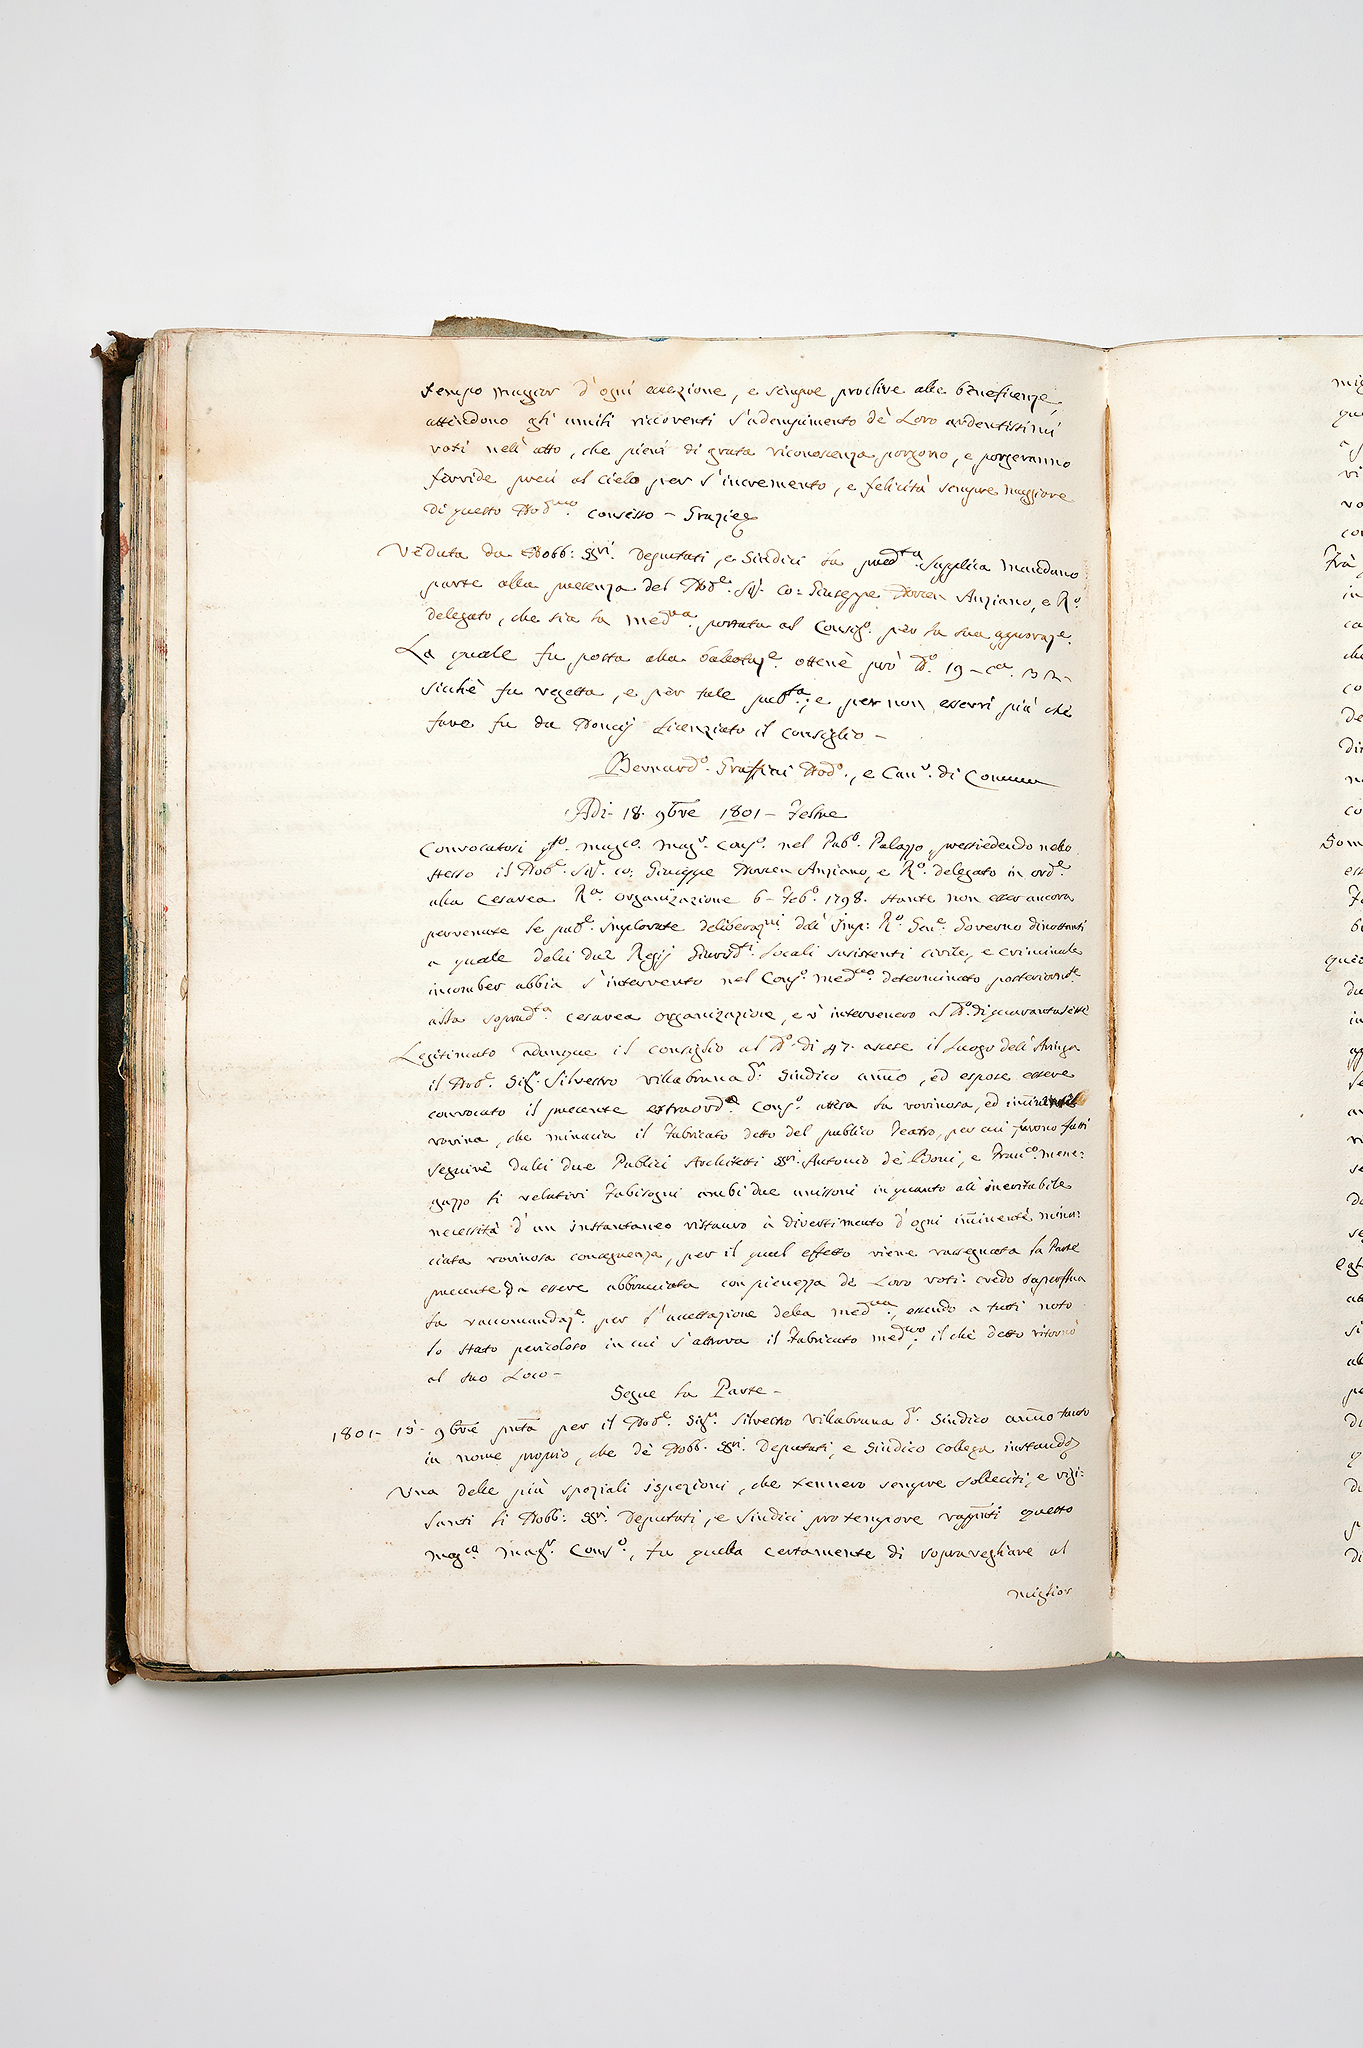 tempo maggior d'ogni eccezione, e sempre proclive alle beneficenze,
attendono gli umili riccorrenti l'adempimento de Loro ardentissimi
voti nell'atto, che pieni di grata riconoscenza porgono, e porgeranno
fervide preci al cielo per l'incremento, e felicità sempre maggiore
di questo Nob.mo consesso – Grazie
Veduta da Nobb: SSri. Deputati, e Sindici la pred.ta supplica mandano
parte alla presenza del Nob.e Sig.r co: Giuseppe Norcen Anziano, e R.o
delegato, che sia la med.ma portata al Consig.o per la sua approvaz.e
La quale fu posta alla ballotaz.e ottenè prò N.o 19 – c.a
sichè fu regetta, e per tale pub.ta; e per non esservi più che
fare fu da Donaij Licenziato il Consiglio –
Bernard.o Graffini Nod.o, e Can.r di Comun
Adi – 18. 9bre 1801 – Feltre
Convocatosi q.to mag.co Mag.r Cons.o nel Pub.o Palazzo, presiedendo nello
stesso il Nob.e Sig.r co: Giuseppe Norcen Anziano, e R.o delegato in ord.e
alla Cesarea R.a organizazione 6 – Feb.o 1798. stante non esser ancora
pervenute le pub.e implorate deliberaz.ni dell' Imp: R.o Gen.e Governo dinottanti
a quale delli due Regij Giurisd.ti locali sussistenti civile, e criminale
incomber abbia l'intervento nel Cons.o med.mo determinato posteriorm.te
alla soprad.ta cesarea organizazione, e v'intervenero al N.o di quarantasette
Legitimato adunque il consiglio al N.o di 47. ascese il luogo dell'Aringa
il Nob.e Sig.r Silvestro Villabruna d.r Sindico anno, ed espose essere
convocato il presente extraord.o Cons.o attesa la rovinosa, ed
rovina, che minacia il Fabricato detto del publico Teatro, per cui furono fatti
seguire dalli due Publici Architetti SSri. Antonio de Boni, e Fran.co Mene:
gazzo li relativi Fabisogni ambi due unissoni in quanto all'inevitabile
necessità d'un instantaneo ristauro à divertimento d'ogni iminente mina:
ciata rovinosa conseguenza, per il qual effetto viene rassegnata la Parte
presente da essere abbracciata con pienezza de Loro voti: credo superflua
la raccomandaz.e per l'accettazione della med.ma, essendo a tutti noto
lo stato pericoloso in cui s'attrova il Fabricato med.mo; il che detto ritornò
al suo Loco –
Segue la Parte –
1801 – 15 – 9bre pnta per il Nob.e Sig.r Silvestro Villabruna d.r Sindico anno tanto
in nome proprio, che de Nobb. SSri. Deputati, e Sindico collega instando
Una delle più speziali ispezioni, che tennero sempre solleciti, e vigi:
lanti li Nobb: SSri. Deputati, e Sindici pro tempore rappnti questo
mag.co Mag.r Cons.o, fu quella certamente di sopravegliare al
miglior